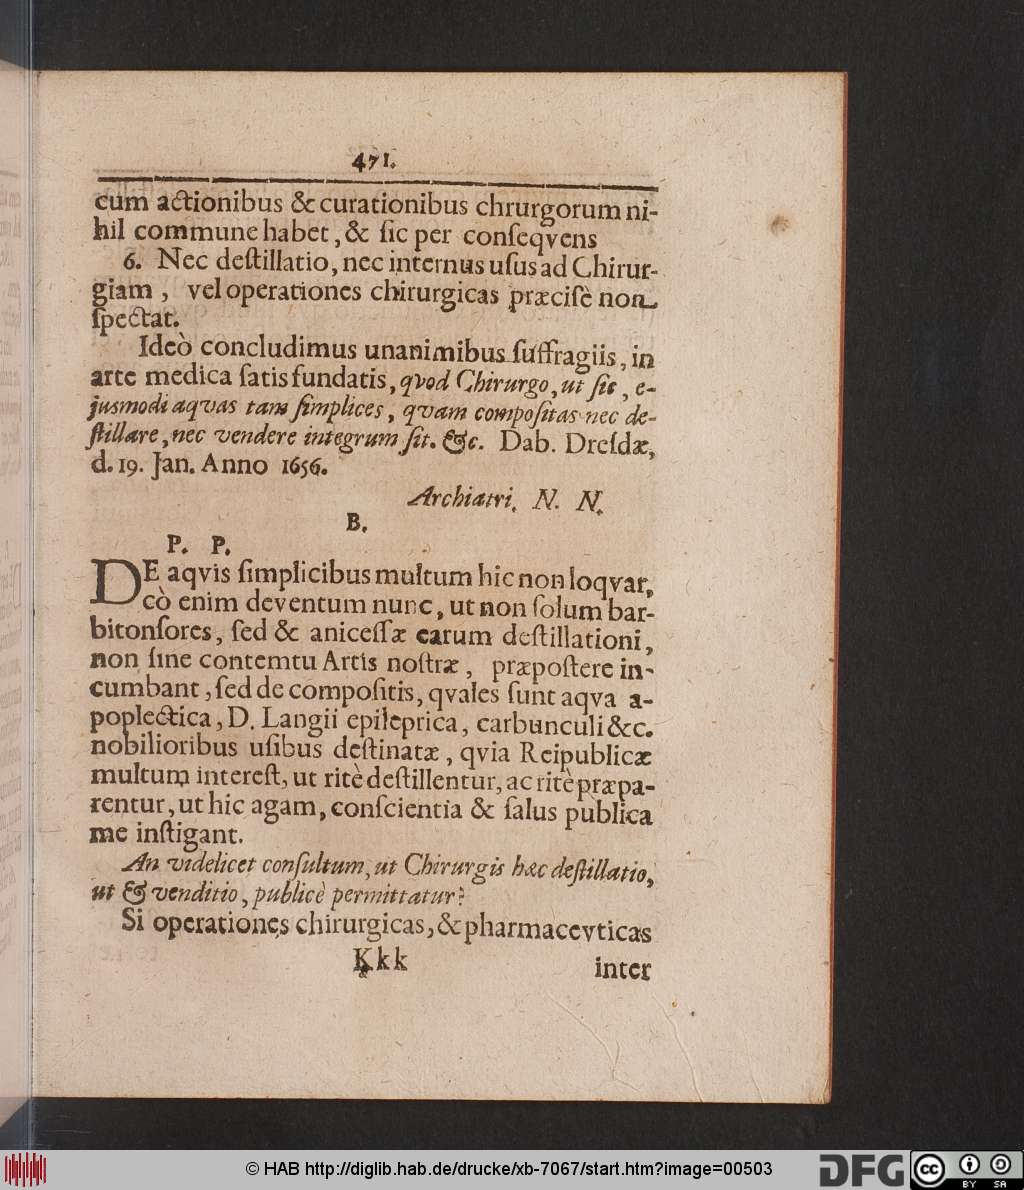 471.
cum actionibus & curationibus chrurgorum ni-
hil commune habet, & ſic per conſeqvens
6. Nec deſtillatio, nec internus uſus ad Chirur-
giam, vel operationes chirurgicas præciſè non
ſpectat.
Ideò concludimus unanimibus ſuffragiis, in
arte medica ſatis fundatis, qvod Chirurgo, ut ſic, e-
jusmodi aqvas tam ſimplices, qvam compoſitas nec de-
ſtillare, nec vendere integrum ſit. &c. Dab. Dreſdæ,
d. 19. Jan. Anno 1656.
Archiatri. N. N.
B.
P. P.
DE aqvis ſimplicibus multum hic non loqvar,
eò enim deventum nunc, ut non ſolum bar-
bitonſores, ſed & aniceſſæ earum deſtillationi,
non ſine contemtu Artis noſtræ, præpoſtere in-
cumbant, ſed de compoſitis, qvales ſunt aqva a-
poplectica, D. Langii epileprica, carbunculi &c.
nobilioribus uſibus deſtinatæ, qvia Reipublicæ
multum intereſt, ut ritè deſtillentur, ac ritè præpa-
rentur, ut hic agam, conſcientia & ſalus publica
me inſtigant.
An videlicet conſultum, ut Chirurgis hæc deſtillatio,
ut & venditio, publicè permittatur?
Si operationes chirurgicas, & pharmacevticas
Kkk
inter
© HAB http://diglib.hab.de/drucke/xb-7067/start.htm?image=00503
DFG
cc
BY SA